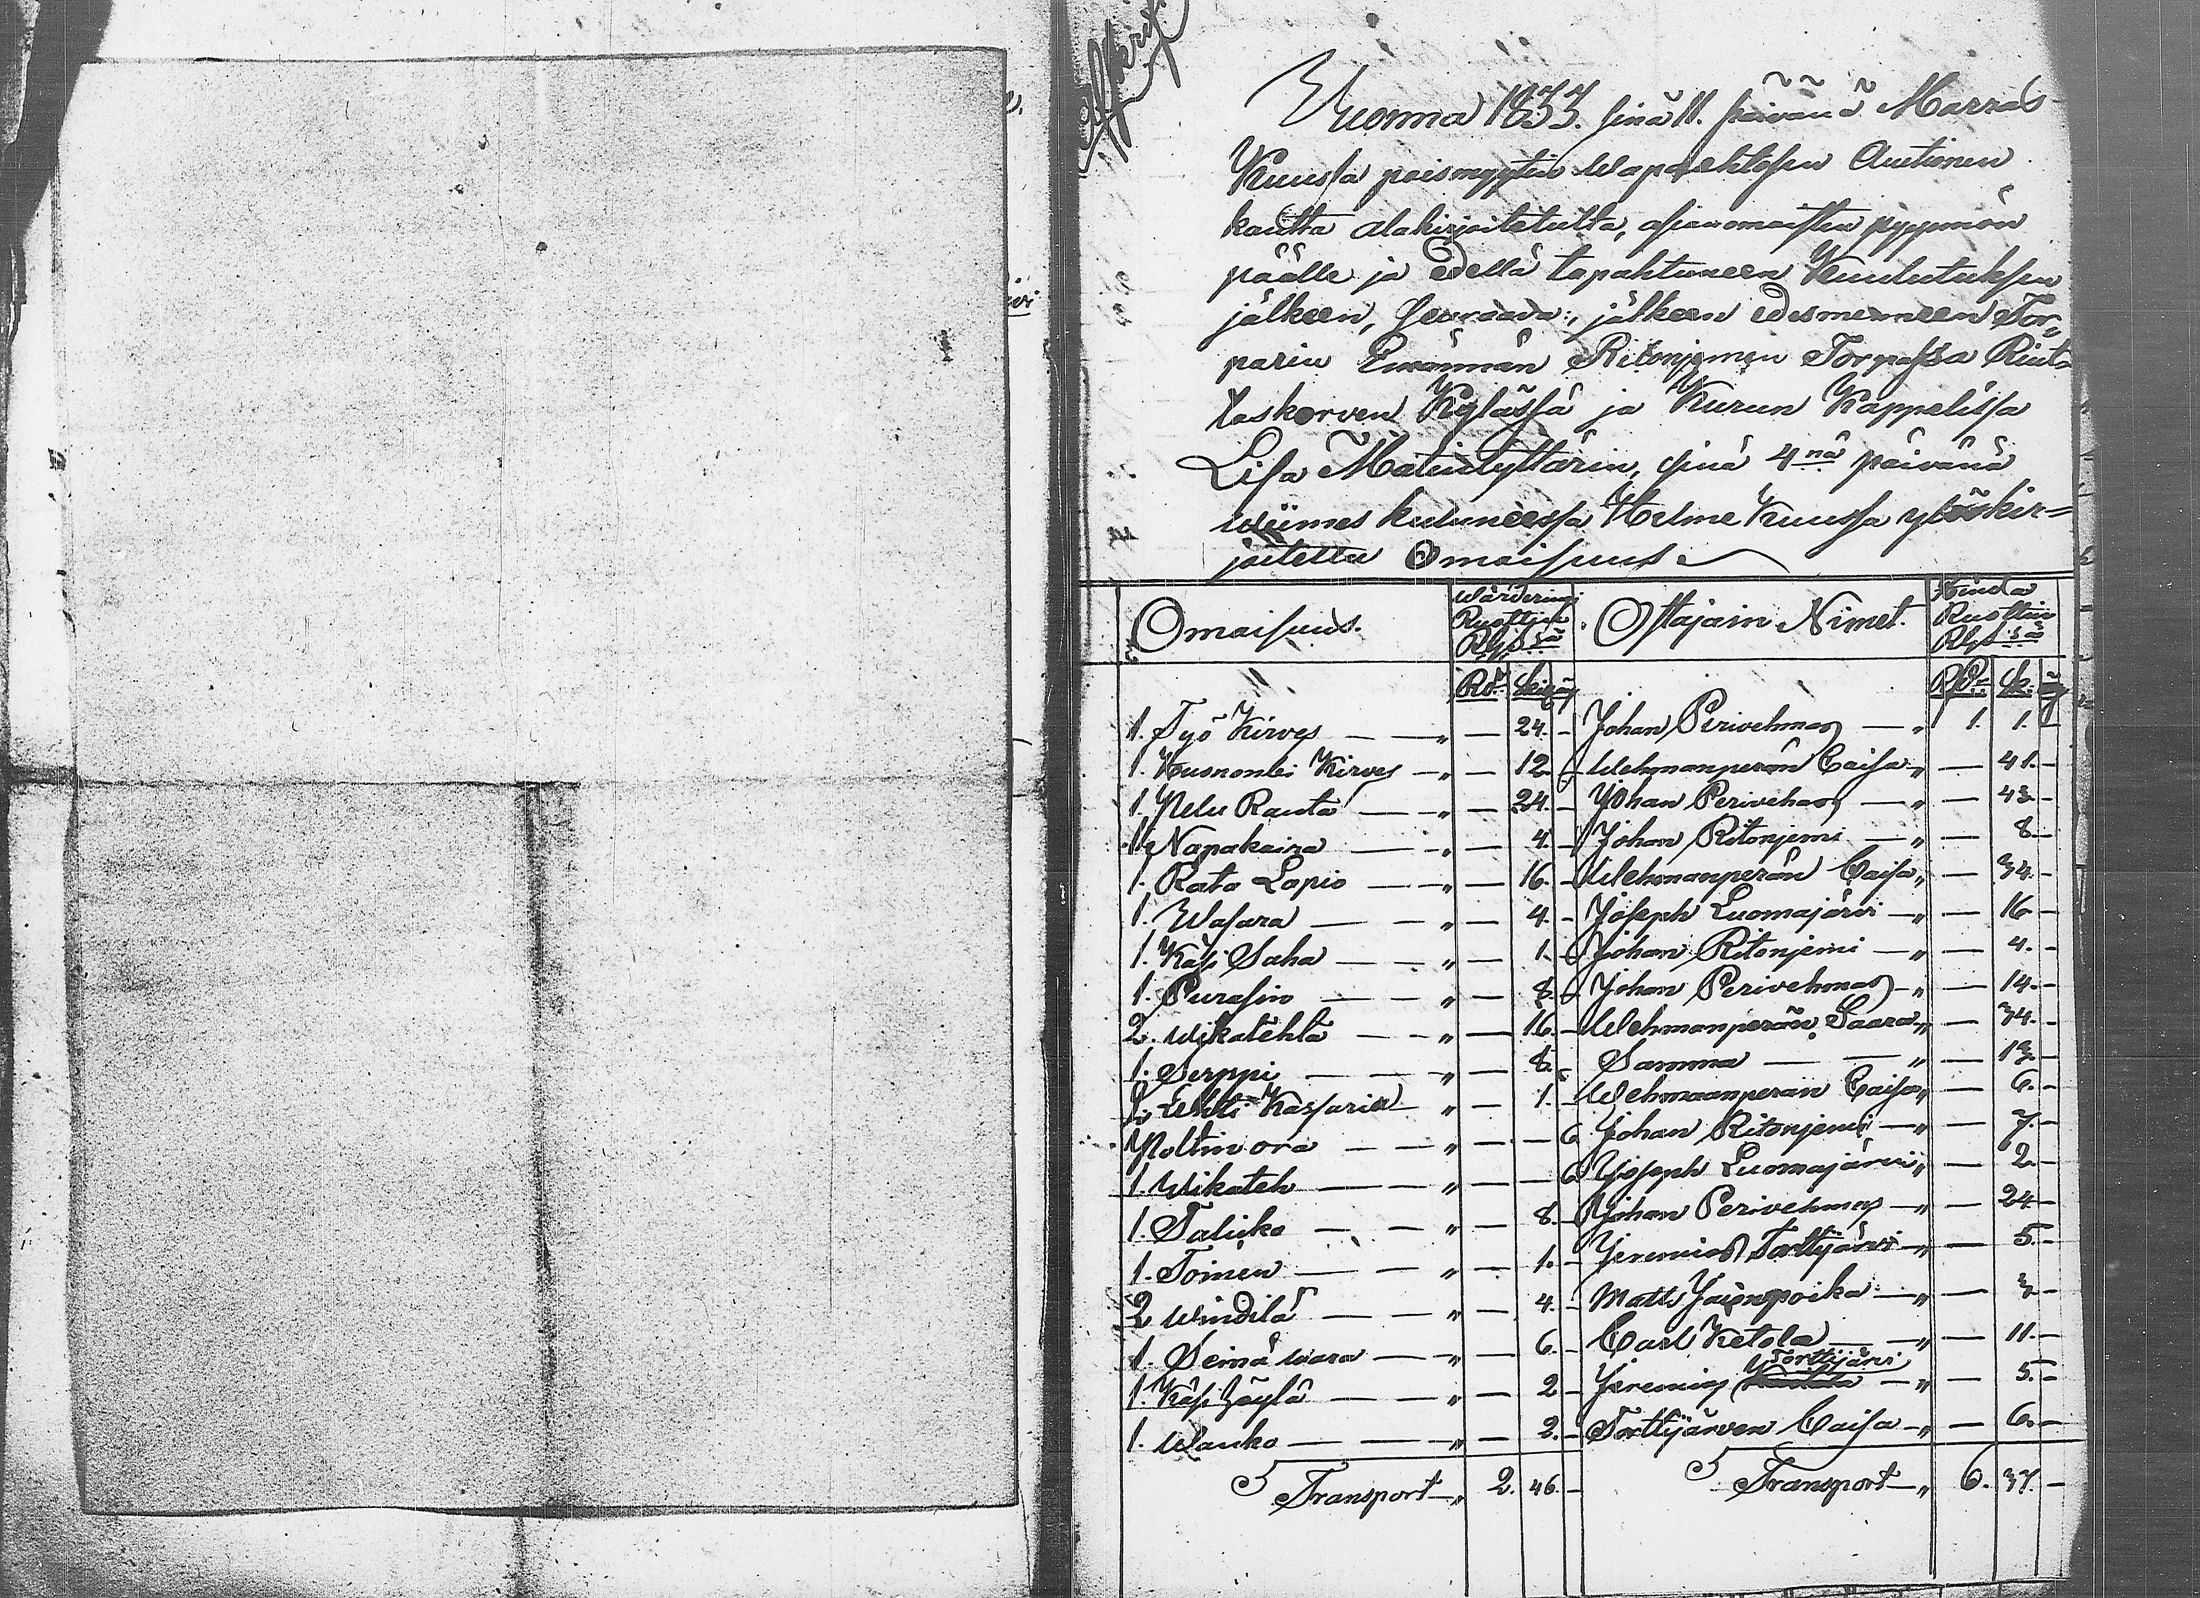 Afskrift
Wuonna 1833. sinä 11. päivänä Marras
Kuussa poismyytin wapaehtosen Auctionen
kautta alakirjoitetulta, asianomaisten pyynnön
päälle ja edellä tapahtuneen Kuulutuksen
jälkeen, seuraava, jälkeen edesmenneen Tor-
parin Emännän Ritonjemen Torpassa Riuta
laskorven Kylässä ja Kurun Kappelissa
Lisa Matintyttärin, sinä 4nä päivänä
wiimes kuluneessa Helme Kuussa ylöskir=
joitettu Omaisuus
Omaisuus. Wärderingi Ruottin Rlji:sä Ostajain Nimet. Hinda Ruottin Rlji:sä
Rd. Skil. Rd. Sk.
1. Työ Kirves — — „ — 24. — Johan Perivehmas — „ 1. 1. —
1. Huonombi Kirves — „ — 12 Wehmanperän Caisa „ — 41. —
1. Nelu Rauta — — „ — 24. — Johan Perivehas — „ — 43. —
1. Napakaira — — „ — 4. Johan Ritonjemi — „ — 8. —
1. Rato Lapio — — „ — 16. — Wehmanperän Caisa „ — 34. —
1. Wasara — — „ — 4. — Joseph Luomajärvi — „ — 16 —
1. Käsi Saha — — „ — 1. Johan Ritonjemi — „ — 4. —
1. Purasin — — „ — 8. Johan Perivehmas — „ — 14. —
2. Wikatehtä — — „ — 16. — Wehmanperän Saara „ — 34. —
1. Serppi — — „ — 8. Samma — — „ — 13. —
Lehti Kassaria „ — 1. — Wehmaanperän Caisa „ — 6. —
Poltin ora — — „ — — 6 Johan Ritonjemi — „ — 7. —
1. Wikateh — — „ — — 6 Joseph Luomajärvi „ — 2. —
1. Talicko — — „ — 8. — Johan Perivehmas — „ — 24 —
1. Toinen — — „ — 1. — Jeremias Torttijärvi — „ — 5. —
2 Windilä — — „ — 4. — Matts Jaconpoika — „ — 3 —
1. Seinä wara — — „ — 6. — Carl Ketola — — „ — 11. —
Torttijärvi
1. Käsi Höylä — — „ — 2 — Jeremias — „ — 5. —
1. Wauko — — „ — 2. — Torttijärven Caisa — „ — 6. —
Transport — „ 2. 46. — Transport — „ 6. 37. —